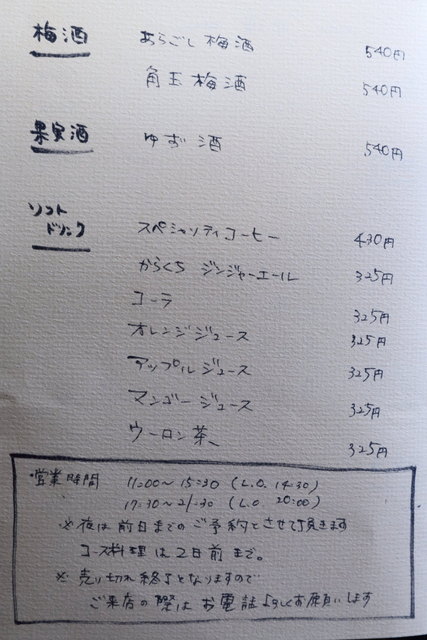 梅酒 あらごし梅酒 540円
角玉梅酒 540円
果実酒 ゆず酒 540円
ソフトドリンク
スペシャリティコーヒー 430円
からくち ジンジャーエール 325円
コーラ 325円
オレンジジュース 325円
アップルジュース 325円
マンゴージュース 325円
ウーロン茶 325円
・営業時間 11:00〜15:30 (L.O. 14:30)
17:30〜21:30 (L.O. 20:00)
※夜は前日までのご予約とさせて頂きます
コース料理は2日前まで。
※売り切れ終了となりますので
ご来店の際はお電話よろしくお願いします